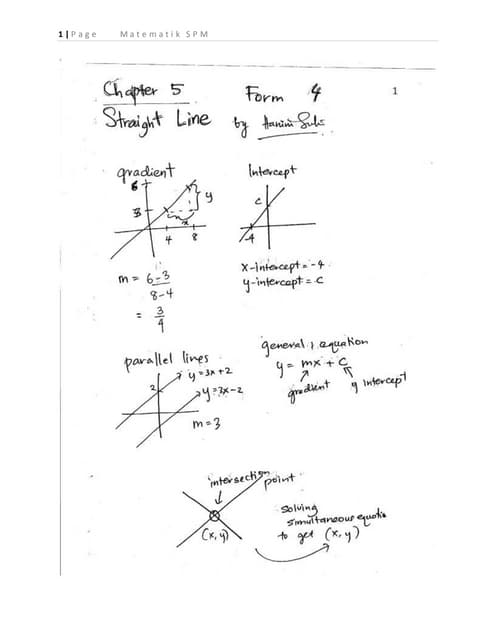 1 | P a g e M a t e m a t i k S P M
1
Chapter 5 Form 4
Straight Line by Hanini
gradient
6
3
y
x
4 8
m = 6-3
8-4
= 3
4
Intercept
c
-4
x-intercept = -4
y-intercept = c
parallel lines
y=3x+2
2
y=3x-2
m=3
general equation
y = mx + c
gradient y intercept
intersection point
(x,y)
solving
simultaneous equatio
to get (x,y)